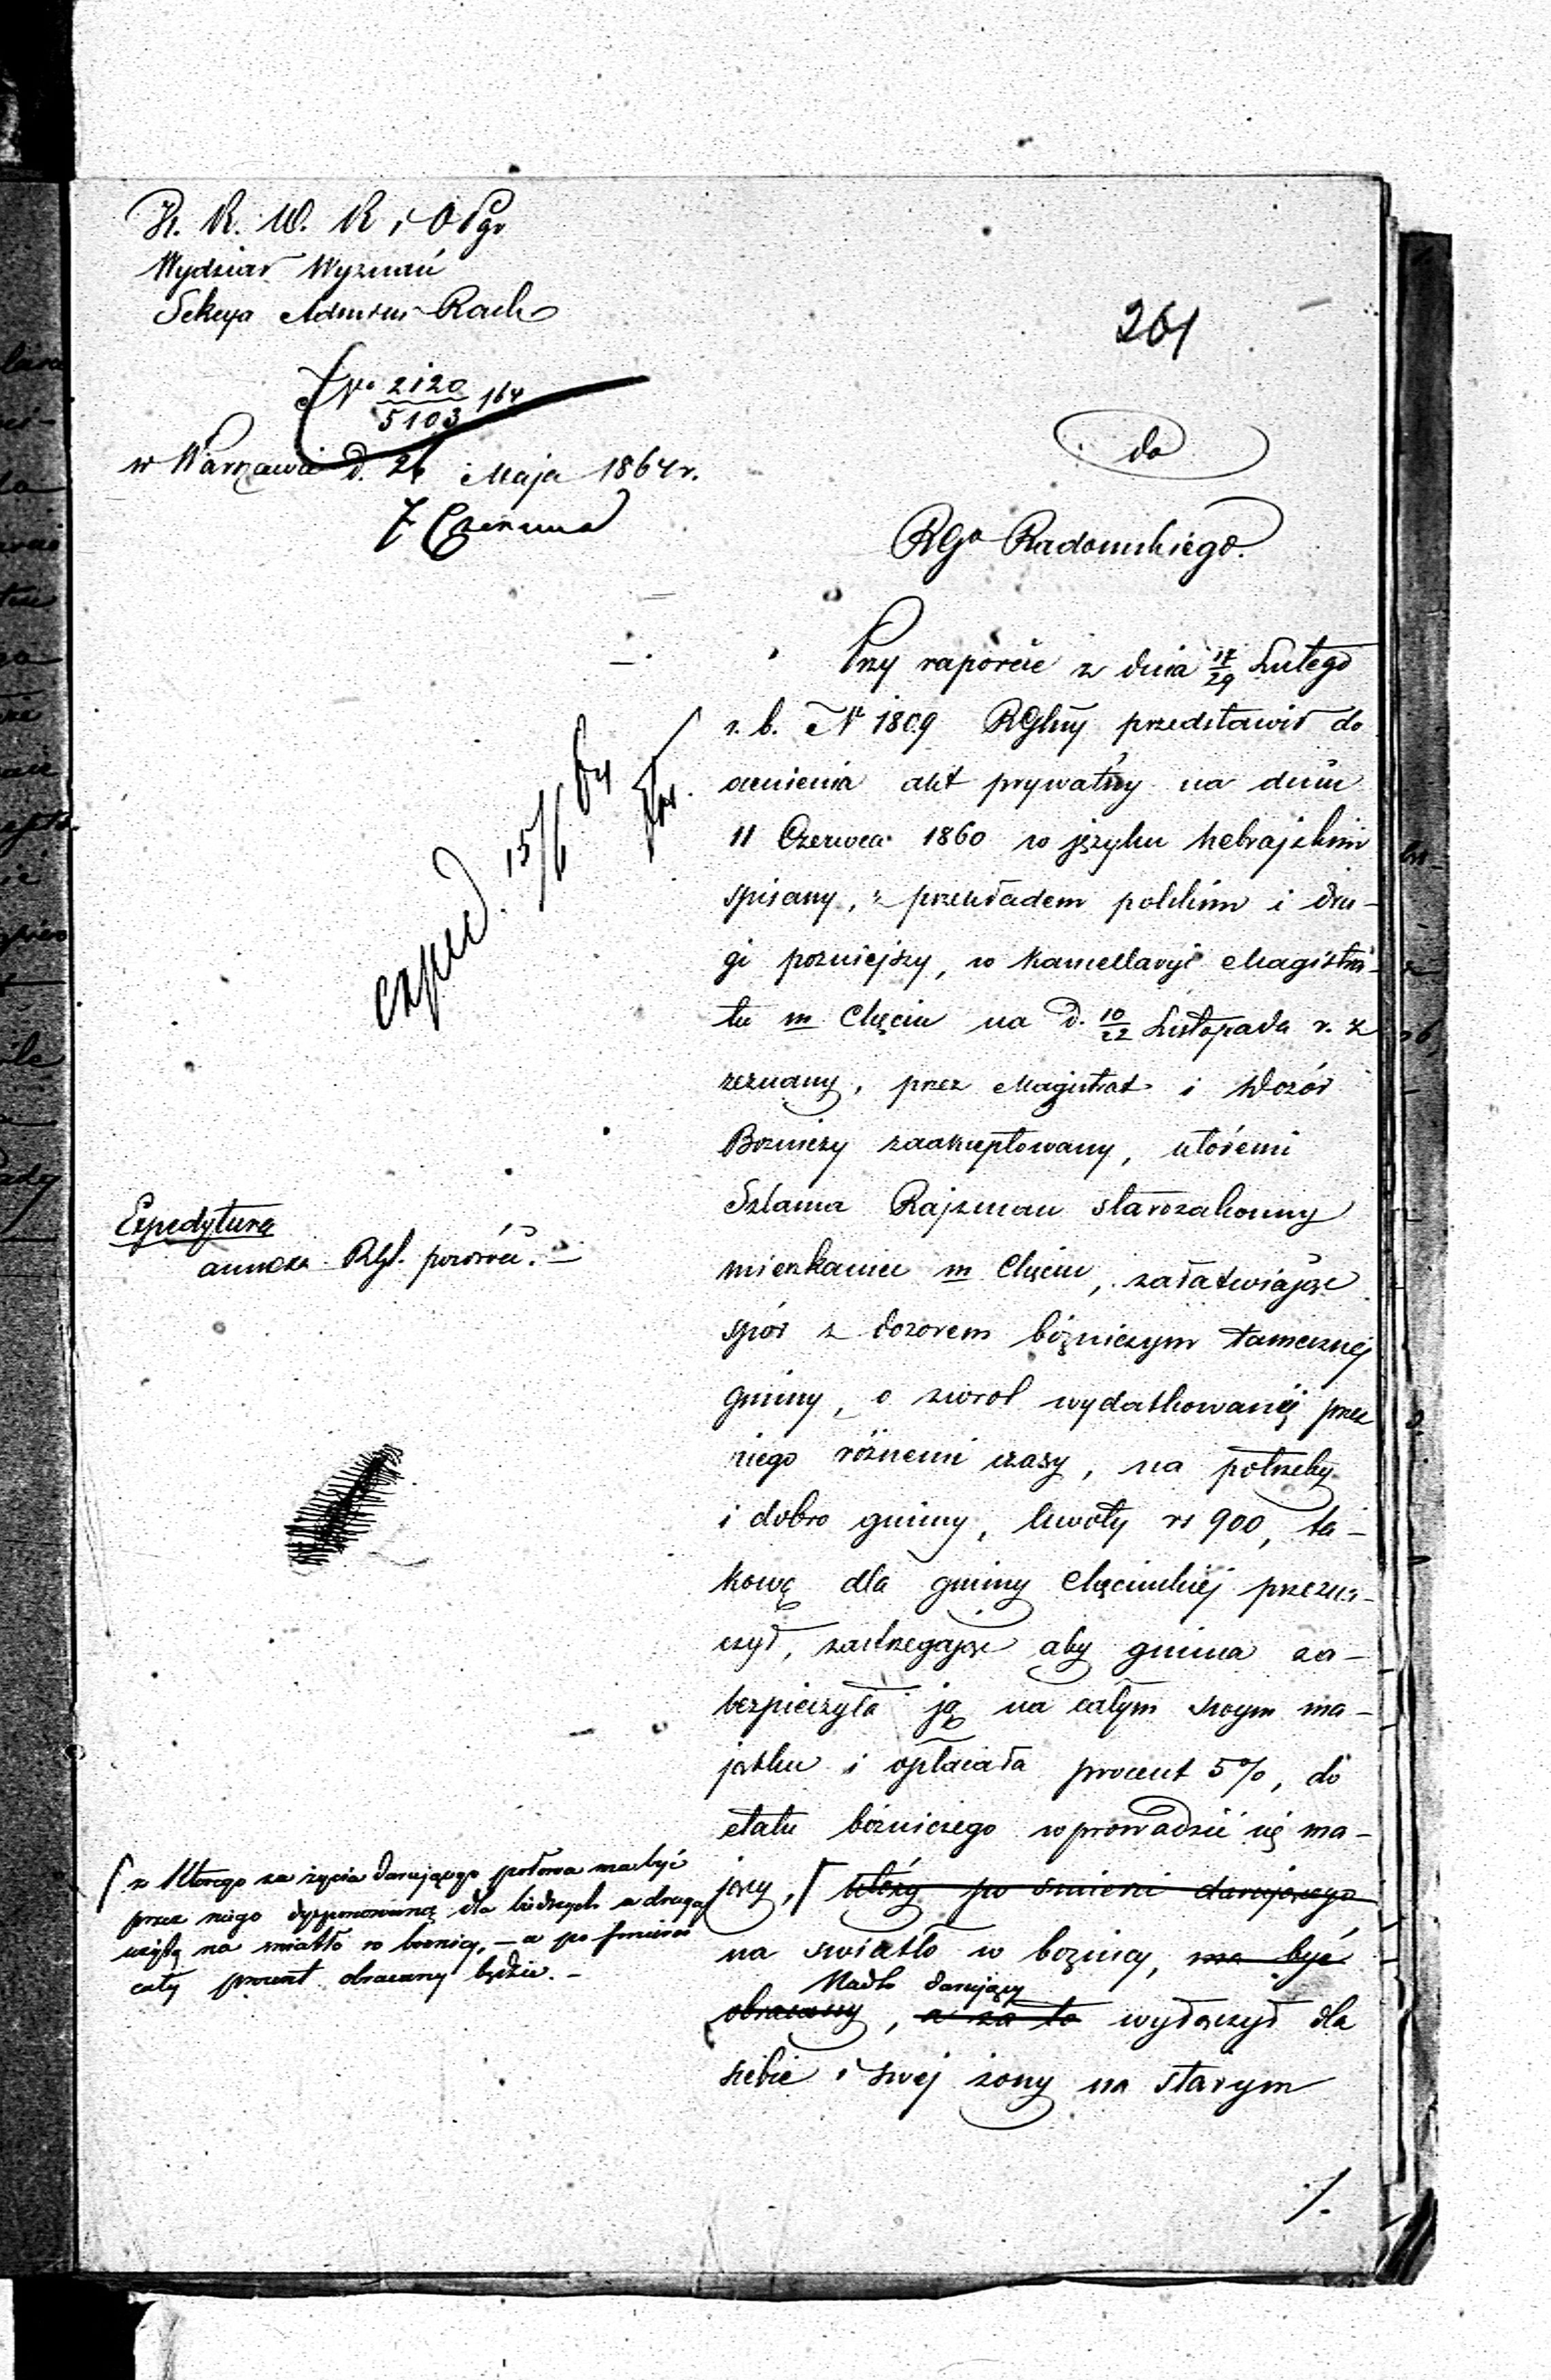 K. R. W. R. i O P
Wydział Wyznań
Sekcya Admin Rach
261
No 2120/5103 /64
w Warszawie d. 26 Maja 1864 r.
7 Czerwca
do
RGo Radomskiego.
Przy raporcie z dnia 17/29 Lutego
r. b. No 1809 RGlny przedstawił do
ocenienia akt prywatny na dniu
11 Czerwca 1860 w języku hebrajskim
spisany, z przekładem polskim i dru-
gi pozniejszy, w kancellaryi Magistra-
tu m Chęcin na d. 10/22 Listopada r. z
zeznany, przez Magistrat i Dozór
Bozniczy zaakceptowany, któremi
Szlama Rajzman starozakonny
mieszkaniec m Chęcin, załatwiając
spór z dozorem bóżniczym tamecznej
gminy, o zwrot wydatkowanéj przez
niego różnemi czasy, na potrzeby
i dobro gminy, kwoty rs 900, ta-
kową dla gminy Chęcińskiéj przezna-
czył, zastrzegając aby gmina za-
bezpieczyła ją na całym swoym ma-
jątku i opłacała procent 5%, do
etatu bóżniczego wprowadzić się ma-
jący, który po śmierci darującego
na swiatło w bożnicy, ma być
Nadto darujący
obracany, a za to wyłączył dla
siebie i swej żony na starym
/.
exped. 15/6 64
Expedytura
annexa RGl. powróci.
z którego za życia darującego połowa ma być
przez niego dysponowaną dla biednych a druga
użytą na swiatło w boznicy, – a po smierci
cały procent obracany będzie. –